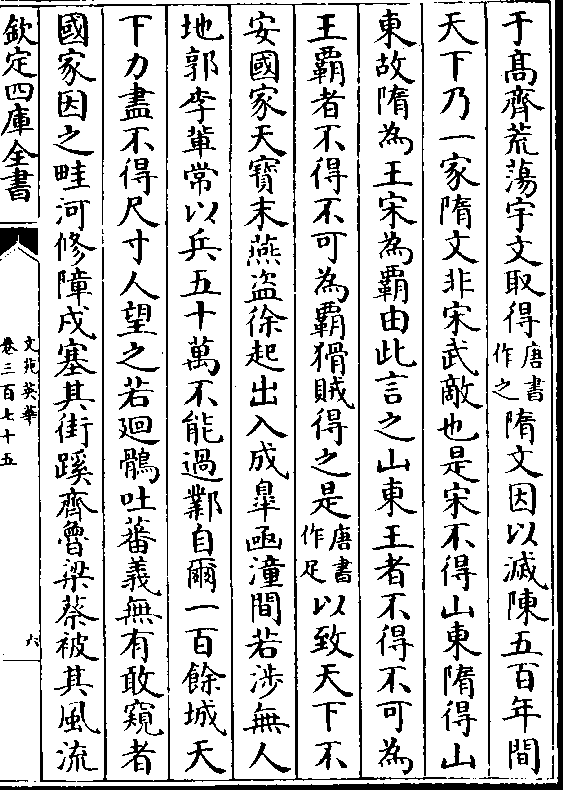 于髙齊荒蕩宇文取得唐書作之隋文因以滅陳五百年間
天下乃一家隋文非宋武敵也是宋不得山東隋得山
東故隋為王宋為霸由此言之山東王者不得不可為
王霸者不得不可為霸猾賊得之是唐書作足以致天下不
安國家天寳末燕盗徐起出入成臯函潼間若渉無人
地郭李軰常以兵五十萬不能過鄴自爾一百餘城天
下力盡不得尺寸人望之若廻鶻吐蕃義無有敢窺者
國家因之畦河修障戍塞其街蹊齊魯梁蔡被其風流
欽定四庫全書
文苑英華
卷三百七十五
六